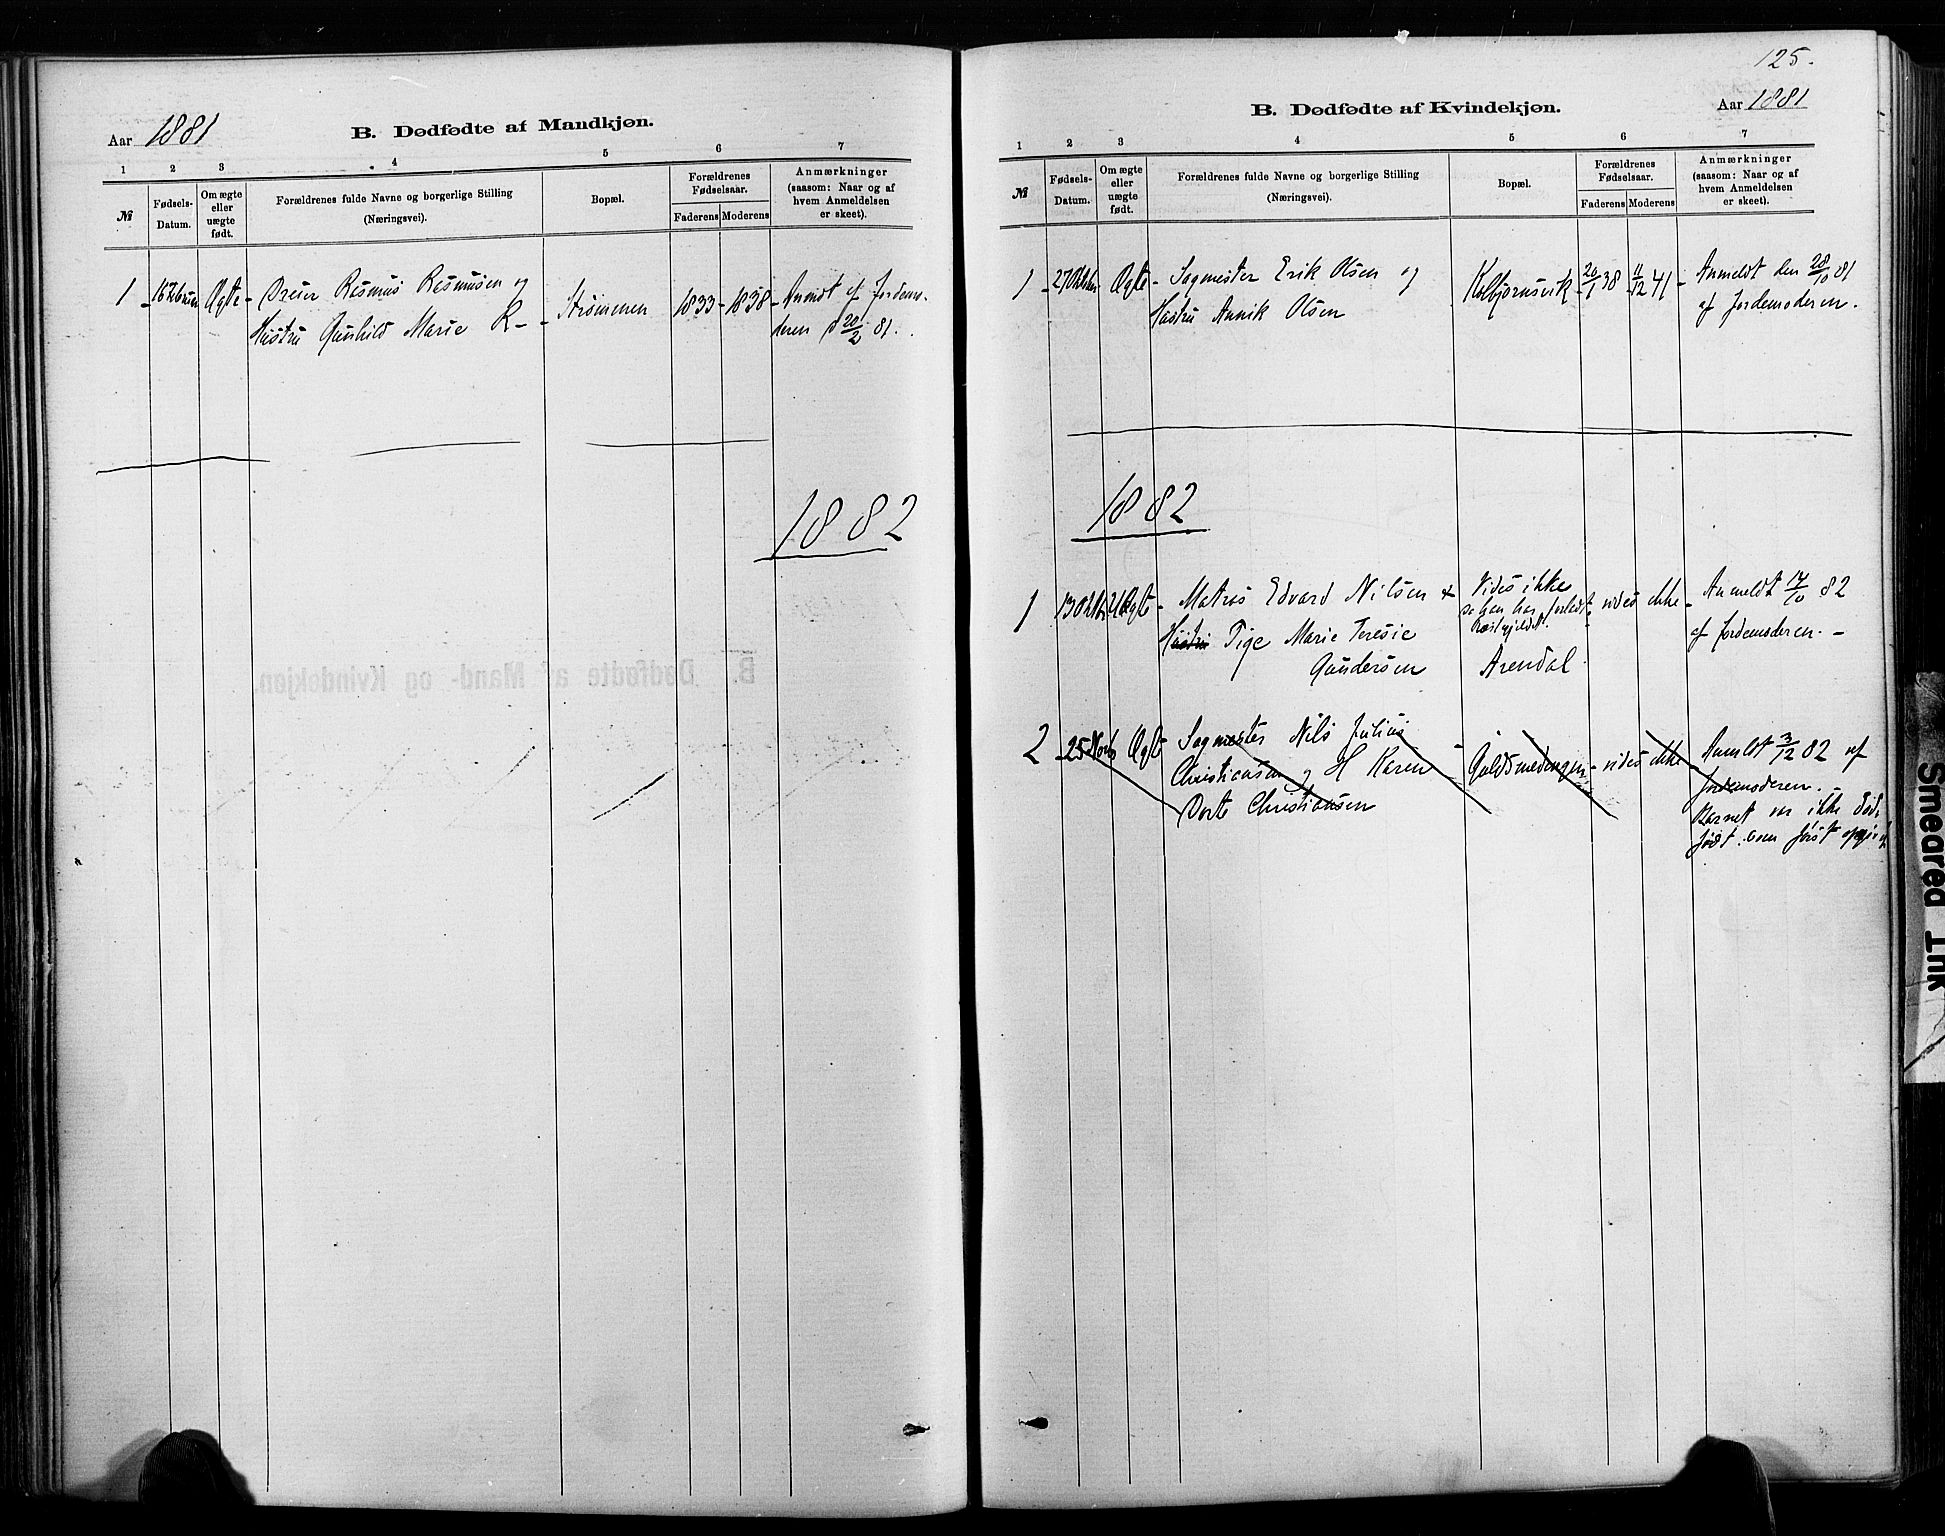 Aar 1881
B. Dødfødte af Mandkjøn.
1 2 3 4 5 6 7
№
Fødsels-
Datum.
Om ægte
eller
uægte
født.
Forældrenes fulde Navne og borgerlige Stilling
(Næringsvei).
Bopæl.
Forældrenes
Fødselsaar.
Faderens Moderens
Anmærkninger
(saasom: Naar og af
hvem Anmeldelsen
er skeet).
1 Ægte Rasmus Rasmusen og
Hustru Gunhild Marie R-
Strømmen
1833 - 1838
Anmdt af Jordemo-
deren d 20/2 81.
1882
B. Dødfødte af Mand- og Kvindekjøn.
125.
B. Dødfødte af Kvindekjøn.
Aar 1881
1 2 3 4 5 6 7
№
Fødsels-
Datum.
Om ægte
eller
uægte
født.
Forældrenes fulde Navne og borgerlige Stilling
(Næringsvei).
Bopæl.
Forældrenes
Fødselsaar.
Faderens Moderens
Anmærkninger
(saasom: Naar og af
hvem Anmeldelsen
er skeet).
1 - 27 Oktbr Ægte - Sagmester Erik Olsen og
Hustru Annik Olsen
Kolbjørnsvik
20/1 38 11/12 41
Anmeldt den 28/10 81
af Jordemoderen.
1882
1 13 Oktbr UÆgte - Matros Edvard Nilsen &
Hustru Pige Marie Teresie
Gundersen
Vides ikke
da han har forladt
Arendal
vides ikke
Anmeldt 14/10 82
af Jordemoderen. -
2 - 25 Novb Ægte Sagmester Nils Julius
Christiansen og H Karen
Dorte Christiansen
Guldsmedengen
- vides ikke
Anmeldt 3/12 82 af
Jordemoderen. -
Barnet var ikke død-
født. som først opgivet
Smeared Ink